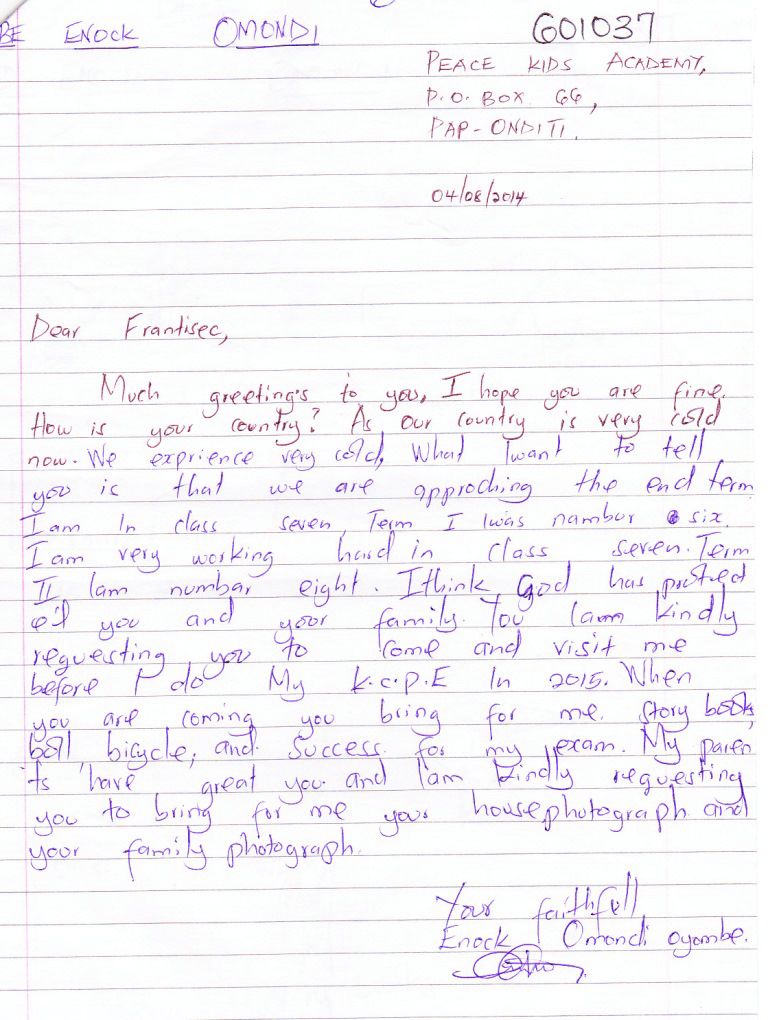 BE ENOCK OMONDI G01037
PEACE KIDS ACADEMY,
P.O. BOX 66,
PAP-ONDITI.
04/08/2014
Dear Frantisec,
Much greeting's to you, I hope you are fine.
How is your country? As our country is very cold
now. We exprience very cold, What I want to tell
you is that we are approching the end term
I am In class seven, Term I I was nambur six.
I am very working hard in class seven. Term
II Iam numbar eight. Ithink God has
you and your family. You Iam kindly
requesting you to come and visit me
before I do My K.C.P.E In 2015. When
you are coming you bring for me. story books,
ball, bicycle, and success for my exam. My paren
ts have great you and Iam kindly requesting
you to bring for me your house photograph and
your family photograph.
Your faithfull
Enock Omondi oyombe.